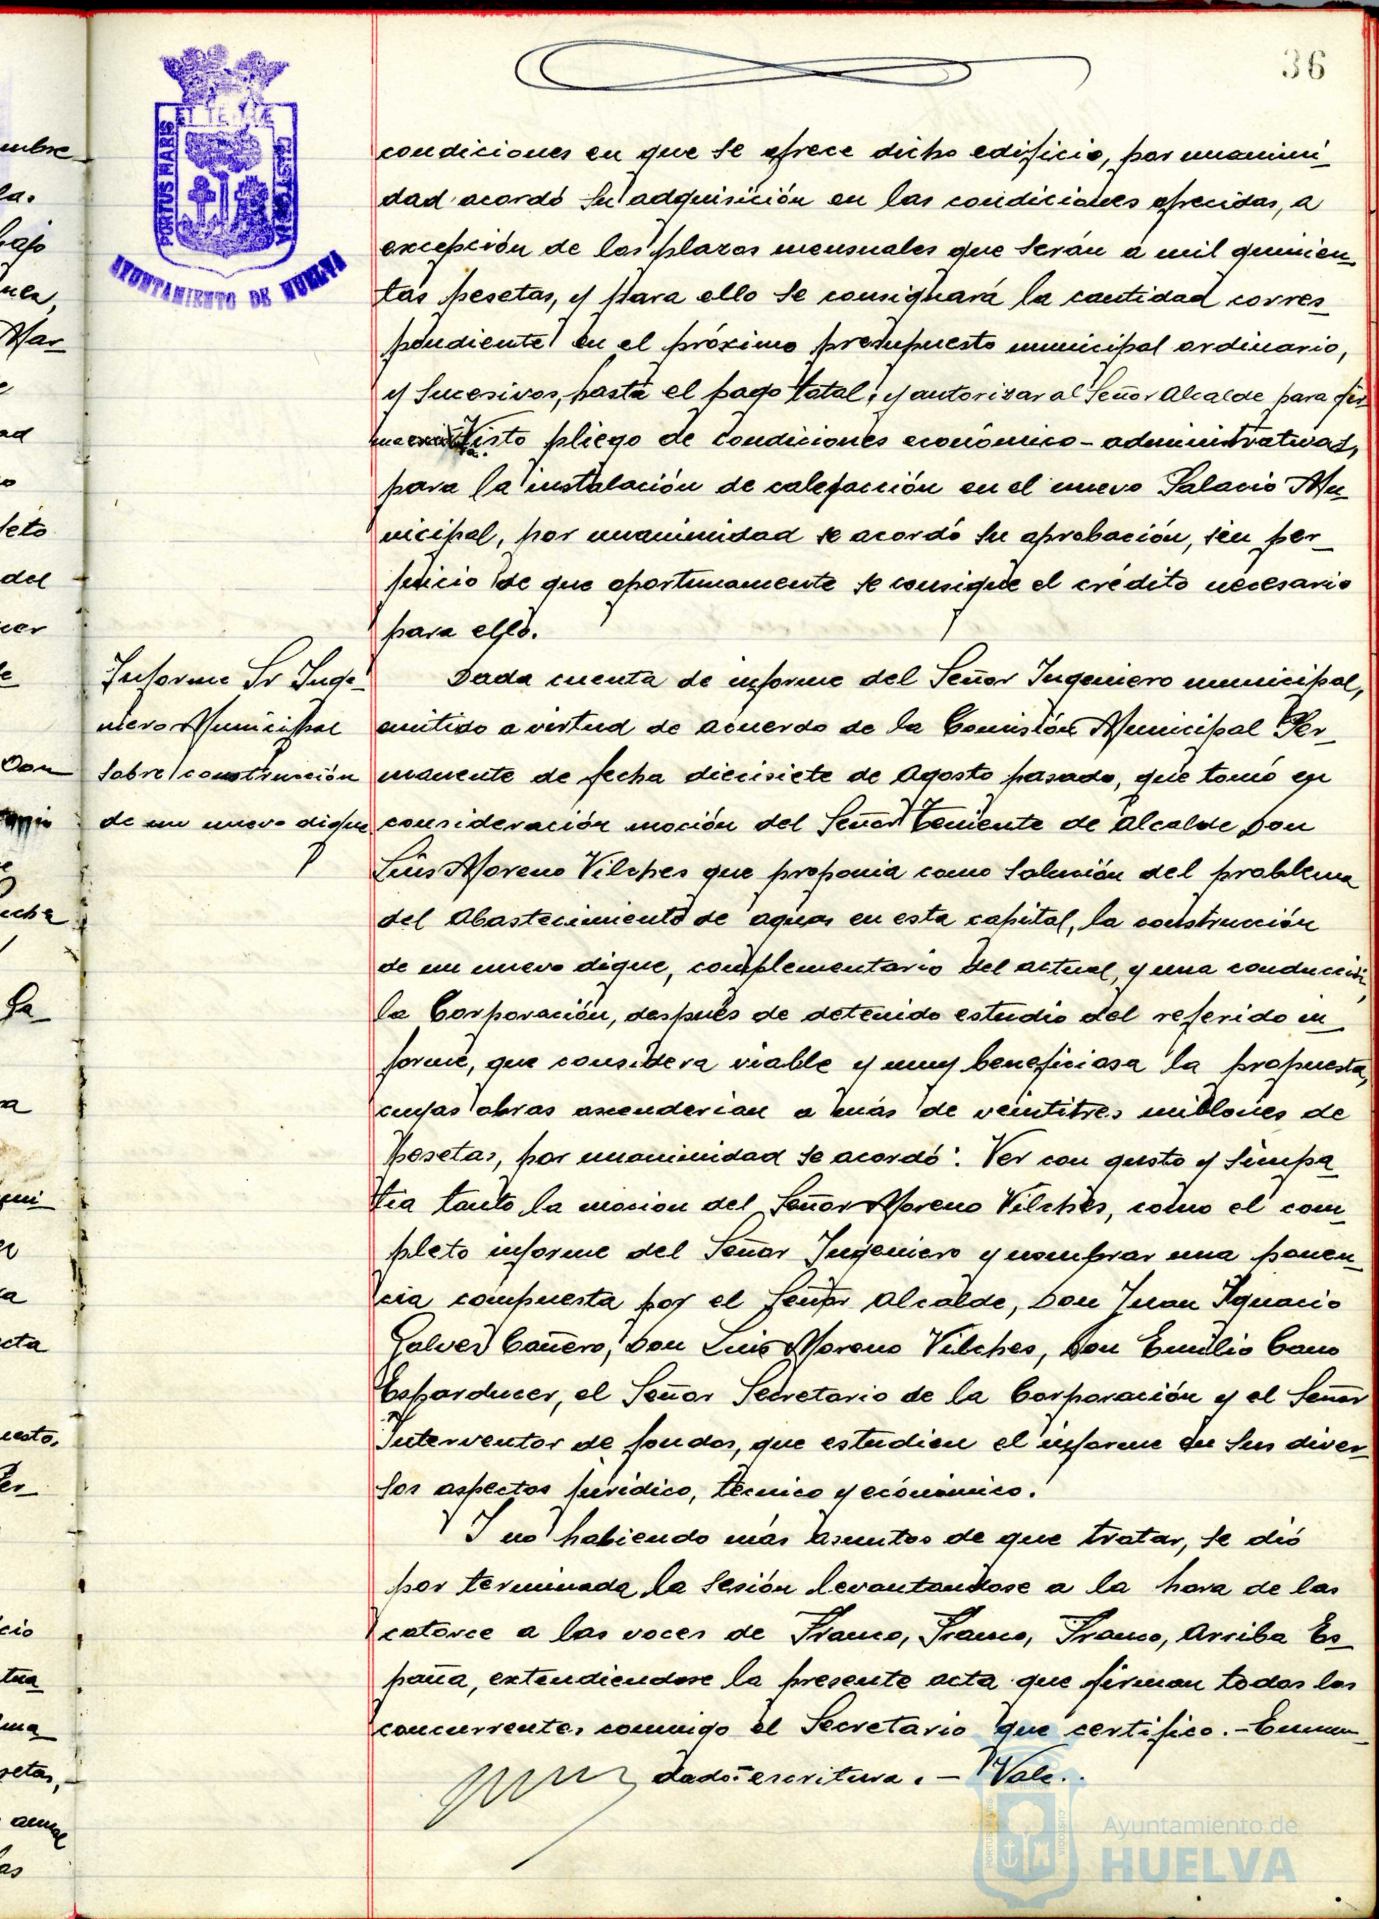 36
ET TERRÆ
PORTUS MARIS
CUSTODIA
AYUNTAMIENTO DE HUELVA
condiciones en que se ofrece dicho edificio, por unanimi-
dad acordó su adquisición en las condiciones ofrecidas, a
excepción de los plazos mensuales que serán a mil quinien-
tas pesetas, y para ello se consignará la cantidad corres-
pondiente en el próximo presupuesto municipal ordinario,
y sucesivos, hasta el pago total; y autorizar al Señor Alcalde para fir-
Visto pliego de condiciones económico-administrativas,
para la instalación de calefacción en el nuevo Palacio Mu-
nicipal, por unanimidad se acordó su aprobación, sin per-
juicio de que oportunamente se consigue el crédito necesario
para ello.
Informe Sr Inge-
niero Municipal
sobre construcción
de un nuevo dique
Dada cuenta de informe del Señor Ingeniero municipal,
emitido a virtud de acuerdo de la Comisión Municipal Per-
manente de fecha diecisiete de Agosto pasado, que tomó en
consideración moción del Señor Teniente de Alcalde Don
Luis Moreno Vilches que proponia como solución del problema
del Abastecimiento de aguas en esta capital, la construcción
de un nuevo dique, complementario del actual, y una conducción,
la Corporación, después de detenido estudio del referido in-
forme, que considera viable y muy beneficiosa la propuesta,
cuyas obras ascenderian a más de veintitres millones de
pesetas, por unanimidad se acordó: Ver con gusto y simpa-
tia tanto la mosion del Señor Moreno Vilches, como el com-
pleto informe del Señor Ingeniero y nombrar una ponen-
cia compuesta por el Señor Alcalde, Don Juan Ignacio
Galvez Cañero, Don Luis Moreno Vilches, Don Emilio Cano
Esparducer, el Señor Secretario de la Corporación y el Señor
Interventor de fondos, que estudien el informe en sus diver-
sos aspectos juridico, técnico y económico.
Y no habiendo más asuntos de que tratar, se dió
por terminada la sesión levantandose a la hora de las
catorce a las voces de Franco, Franco, Franco, Arriba Es-
paña, extendiendose la presente acta que firman todos los
concurrentes conmigo el Secretario que certifico.-Enmen-
dado: escritura.- Vale.
Ayuntamiento de
HUELVA